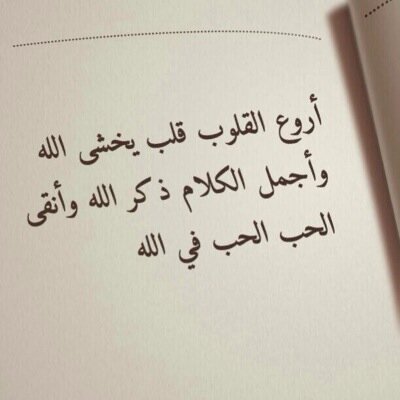 أروع القلوب قلب يخشى الله
وأجمل الكلام ذكر الله وأنقى
الحب الحب في الله